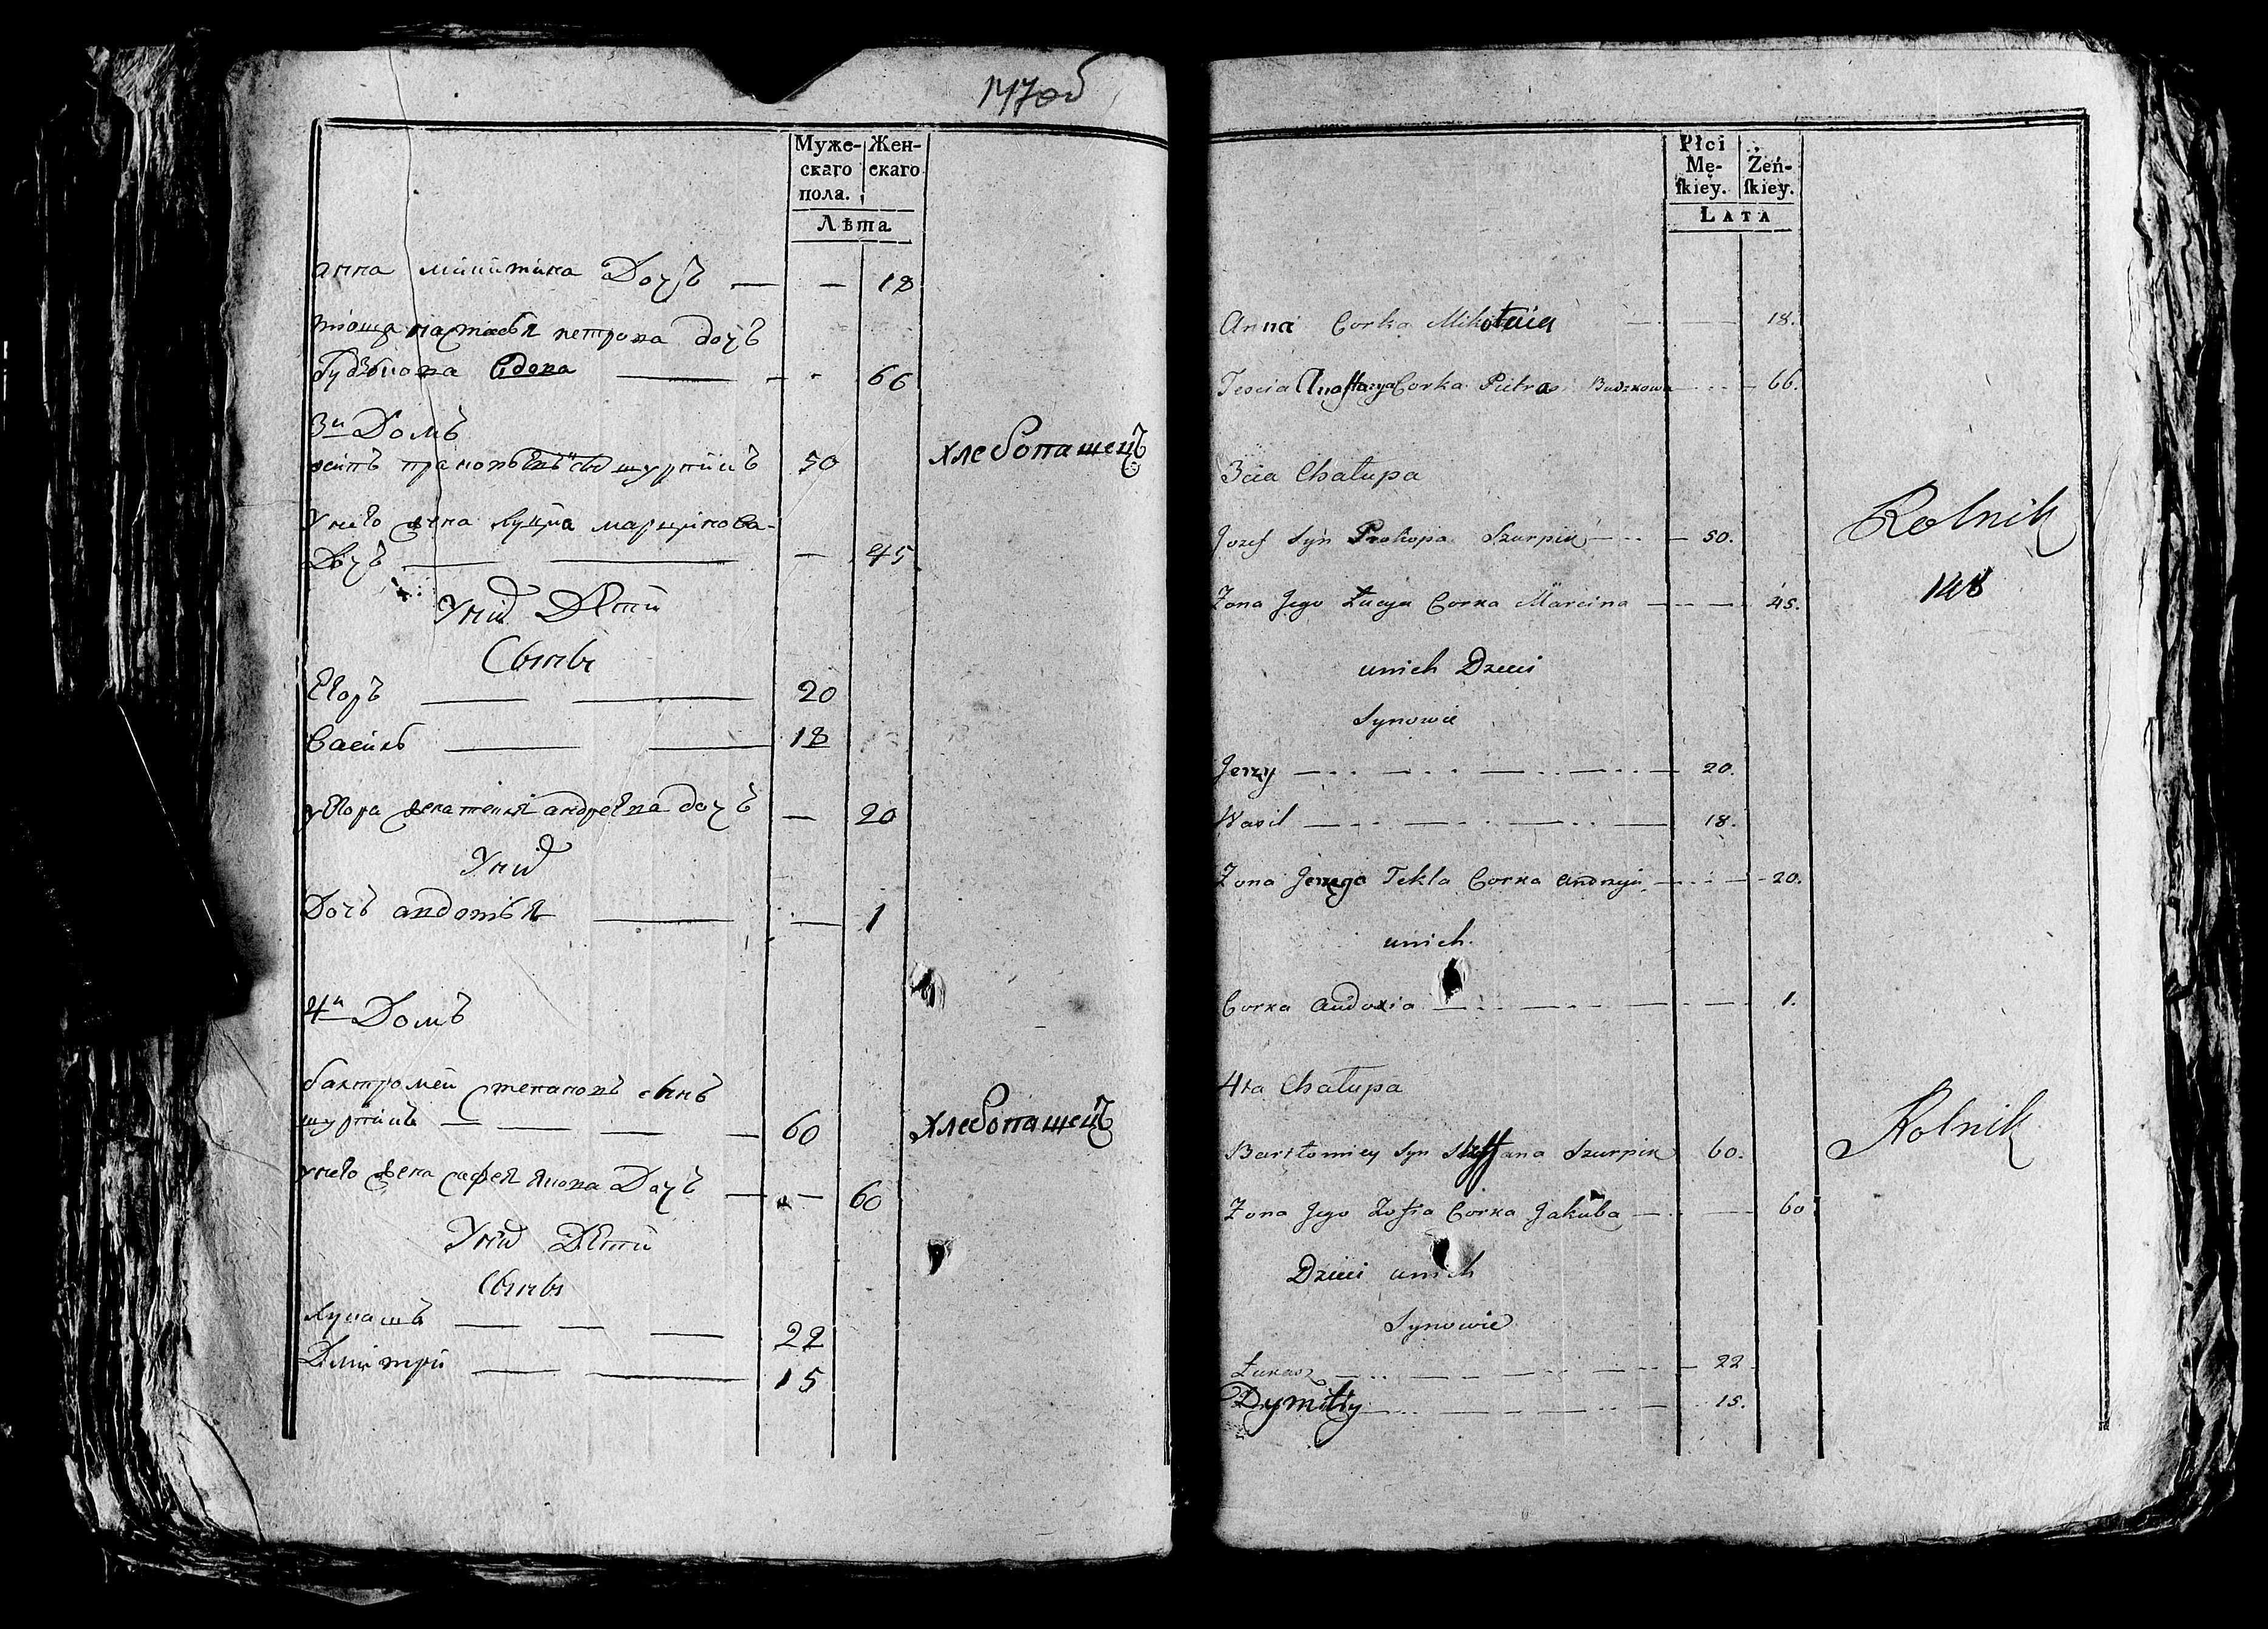 147об
Муже- Жен-
скаго скаго
пола.
Лѣта
анна микитина Дочъ — — 18
тіоща настасья петрова дочъ
вдова — - - 66
3й Домъ
осипъ шурпикъ 50 хлебопашецъ
У него жена луцыа марцинова
Дочъ — — 45
У них Дѣти
Сыны
Егоръ — — 20
Василь — — 18
у Егора жена текля андреева дочъ — 20
У них
Дочъ авдотья — — 1
4й Домъ
бактромей степановъ сынъ
шурпикъ — — — — 60 хлебопашецъ
у него жена софея якова Дочъ — — 60
У них Дѣти
Сыны
лукашъ — — — 22
Дмитри — — 15
Płci
Mę- Żeń-
ſkiey. ſkiey.
LATA
Anna Corka Mikołaia — 18.
Tescia Anastazya Corka Pietra Budzkowa — 66.
3cia Chałupa
Jozef Syn Prokopa Szurpik — 50. Rolnik
Zona Jego Łucya Corka Marcina — 45. 148
unich Dzieci
Synowie
Jerzy — 20.
Wasil — 18.
Zona Jerzego Tekla Corka Andrzyia — 20.
unich.
Corka Audoxia — 1.
4ta Chałupa
Bartłomiey Syn Steffana Szurpik 60. Rolnik
Zona Jego Zofia Corka Jakuba — 60
Dzieci unich
Synowie
Łukasz — 22
Dymitry — 15.